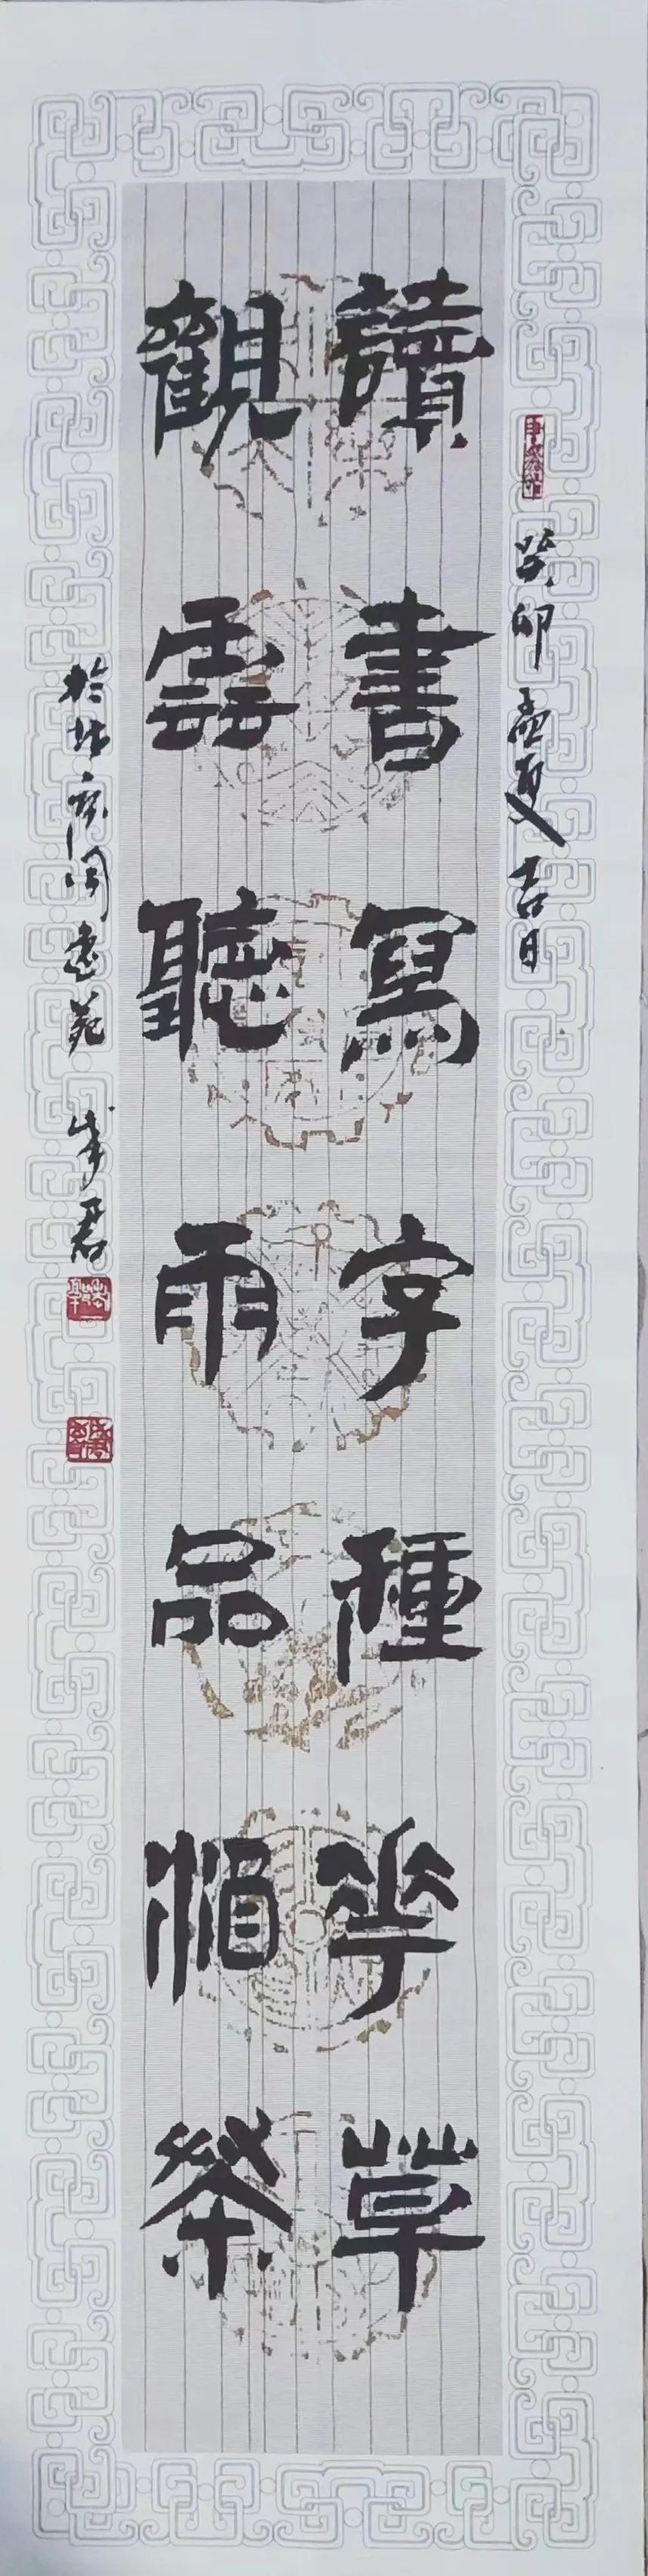 癸卯孟夏吉日
讀書寫字種花草
觀雲聽雨品酒茶
於北京閒逺苑 成君